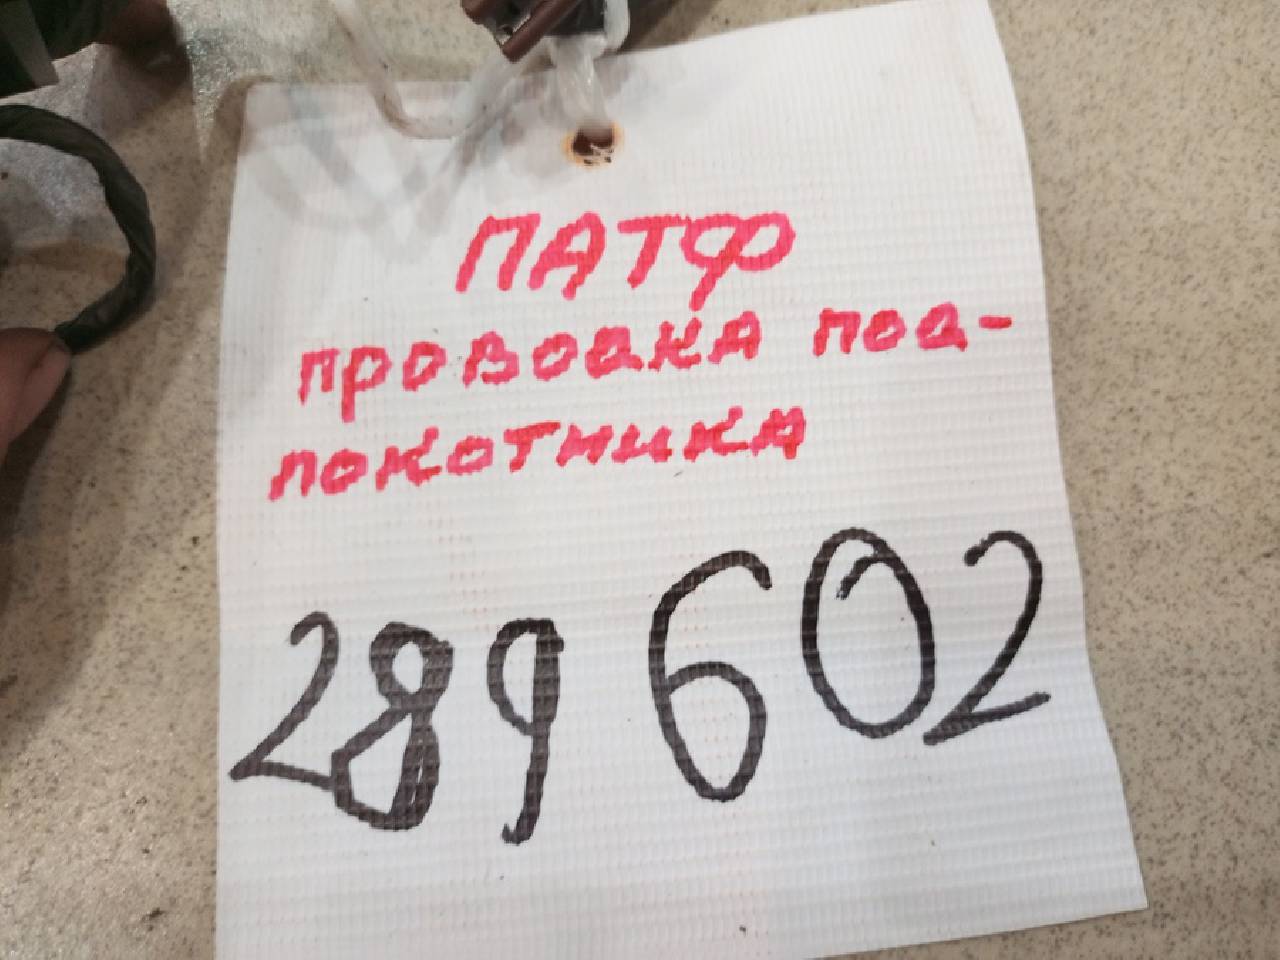 ПАТФ
проводка под-
локотника
289 602